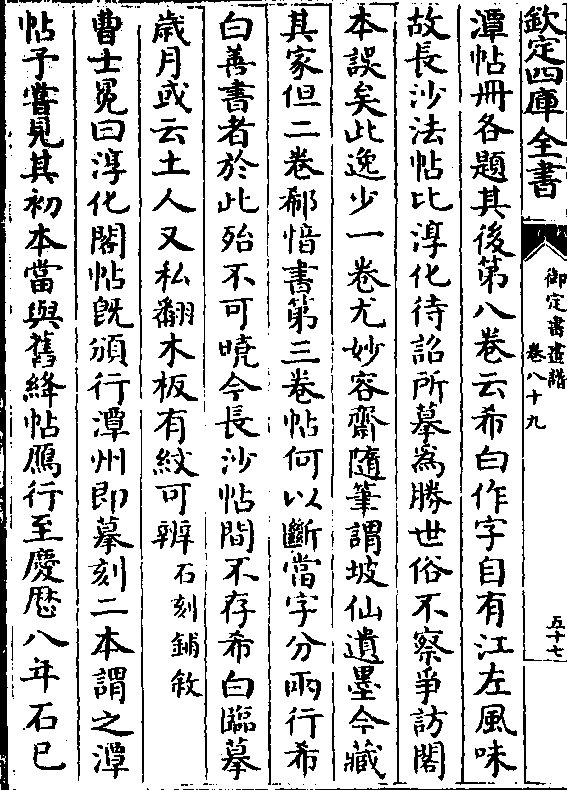 欽定四庫全書
御定書畫譜
卷八十九
五十七
潭帖冊各題其後第八卷云希白作字自有江左風味
故長沙法帖比淳化待詔所摹為勝世俗不察爭訪閣
本誤矣此逸少一卷尤妙容齋隨筆謂坡仙遺墨今藏
其家但二卷郗愔書第三卷帖何以斷當字分兩行希
白善書者於此殆不可曉今長沙帖間不存希白臨摹
歲月或云土人又私翻木板有紋可辨石刻鋪敘
曹士冕曰淳化閣帖既頒行潭州即摹刻二本謂之潭
帖予嘗見其初本當與舊絳帖鴈行至慶厯八年石已